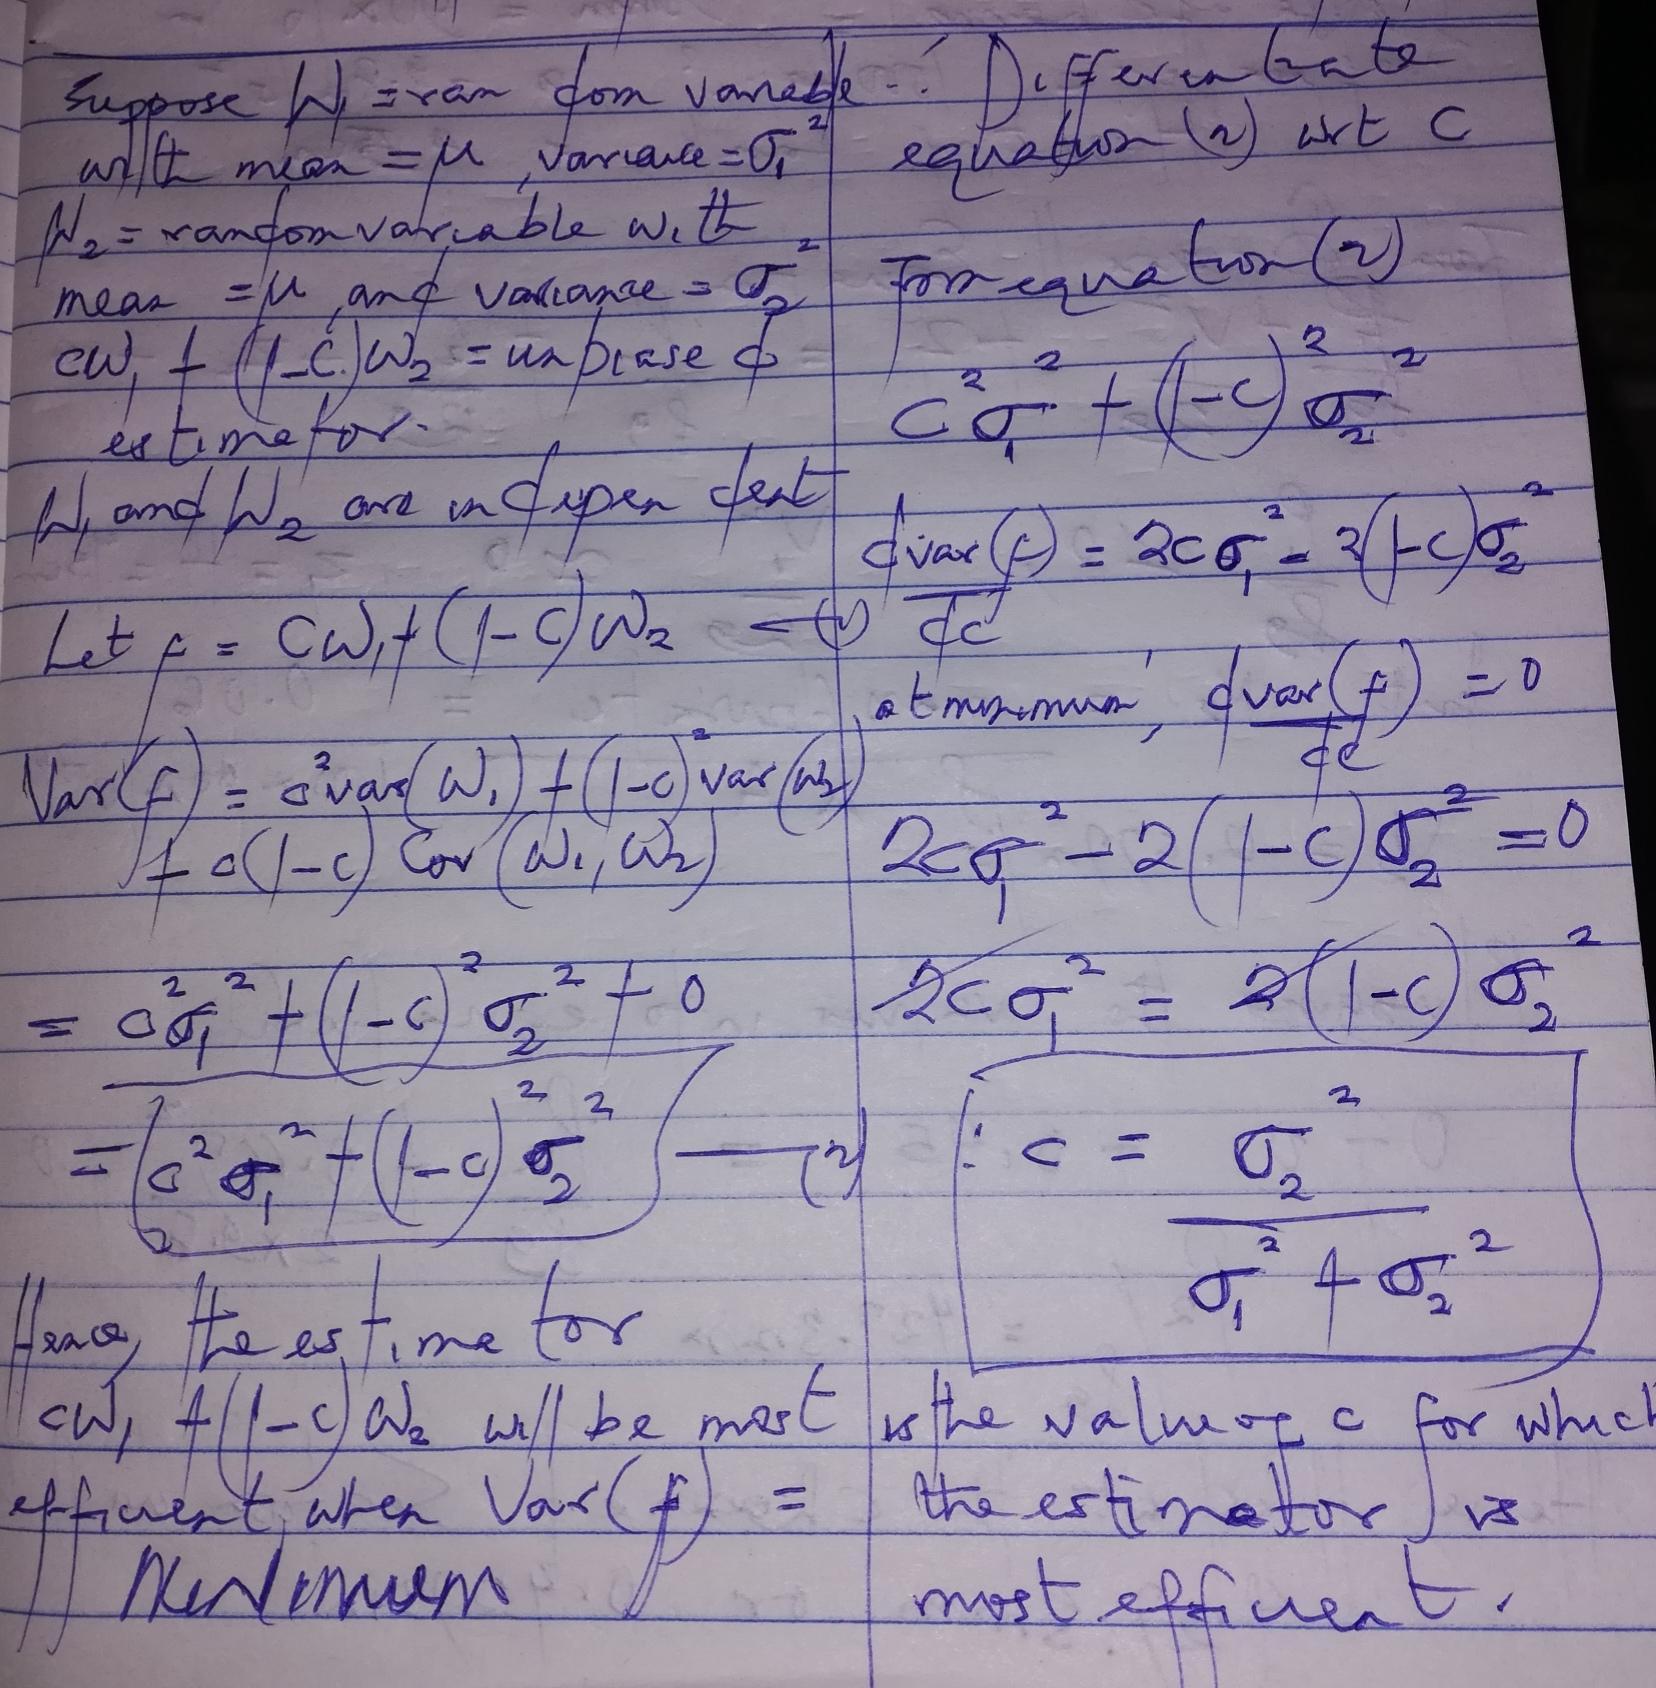 Suppose W₁ = random variable
with mean = μ, variance = σ₁²
W₂ = random variable with
mean = μ and variance = σ₂²
cW₁ + (1-c)W₂ = unbiased
estimator.
W₁ and W₂ are independent
Let f = cW₁ + (1-c)W₂ ← (1)
Var(f) = c²var(W₁) + (1-c)²var(W₂)
+ c(1-c) Cov(W₁, W₂)
= c²σ₁² + (1-c)²σ₂² + 0
= c²σ₁² + (1-c)²σ₂² — (2)
Hence, the estimator
cW₁ + (1-c)W₂ will be most
efficient, when Var(f) =
Minimum
∴ Differentiate
equation (2) wrt c
From equation (2)
c²σ₁² + (1-c)²σ₂²
dvar(f)/dc = 2cσ₁² - 2(1-c)σ₂²
at minimum, dvar(f)/dc = 0
2cσ₁² - 2(1-c)σ₂² = 0
2cσ₁² = 2(1-c)σ₂²
∴ c = σ₂² / σ₁² + σ₂²
is the value of c for which
the estimator is
most efficient.